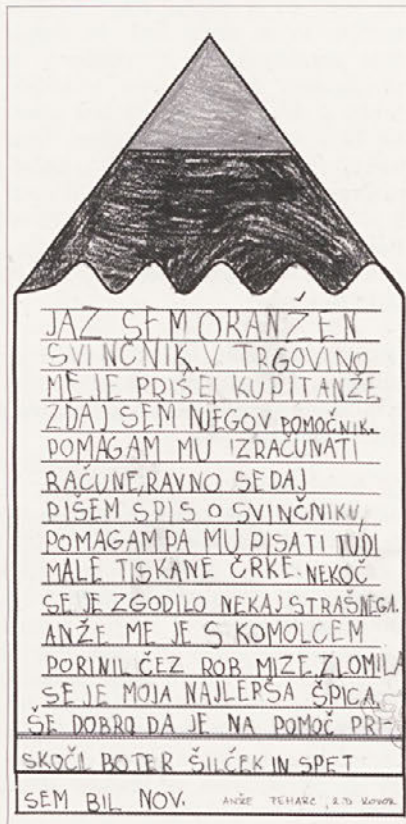 JAZ SEM ORANŽEN
SVINČNIK. V TRGOVINO
ME JE PRIŠEL KUPIT ANŽE,
ZDAJ SEM NJEGOV POMOČNIK.
POMAGAM MU IZRAČUNATI
RAČUNE, RAVNO SEDAJ
PIŠEM SPIS O SVINČNIKU,
POMAGAM PA MU PISATI TUDI
MALE TISKANE ČRKE. NEKOČ
SE JE ZGODILO NEKAJ STRAŠNEGA.
ANŽE ME JE S KOMOLCEM
PORINIL ČEZ ROB MIZE, ZLOMILA
SE JE MOJA NAJLEPŠA ŠPICA.
ŠE DOBRO DA JE NA POMOČ PRI-
SKOČIL BOTER ŠILČEK IN SPET
SEM BIL NOV. ANŽE TEHARC, 2. KOVOR